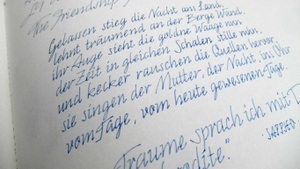 The Friendship
Gelassen stieg die Nacht ans Land,
lehnt träumend an der Berge Wand,
ihr Auge sieht die goldne Waage nun
der Zeit in gleichen Schalen stille ruhn,
und kecker rauschen die Quellen hervor,
sie singen der Mutter, der Nacht, ins Ohr
vom Tage, vom heute gewesenen Tage.
Traume sprach ich mit
rodite".
-SAPPHO